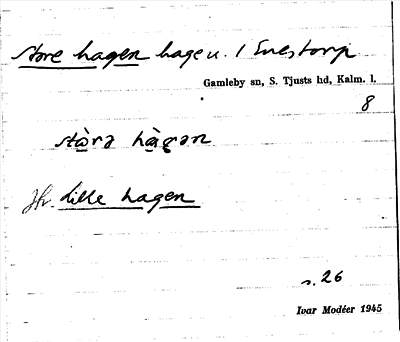 Store hagen hage u. 1 Enestorp
Gamleby sn, S. Tjusts hd, Kalm. l.
8
stòrə hàgən
Jfr. Lille hagen
s. 26
Ivar Modéer 1945